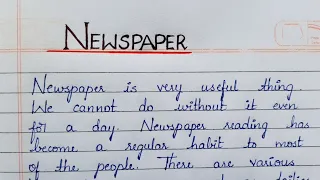 NEWSPAPER
Newspaper is very useful thing.
We cannot do without it even
for a day. Newspaper reading has
become a regular habit to most
of the people. There are various